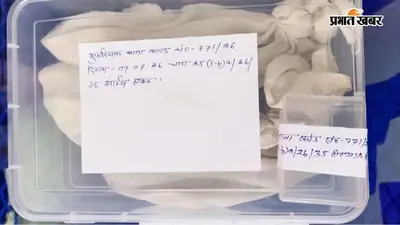 प्रभात खबर
मुफस्सिल थाना काण्ड सं०-771/26
दिनांक-07.07.26 धारा 25(1-b)a/26/
35 आर्म्स एक्ट।
काण्ड सं०-771/
b)a/26/35